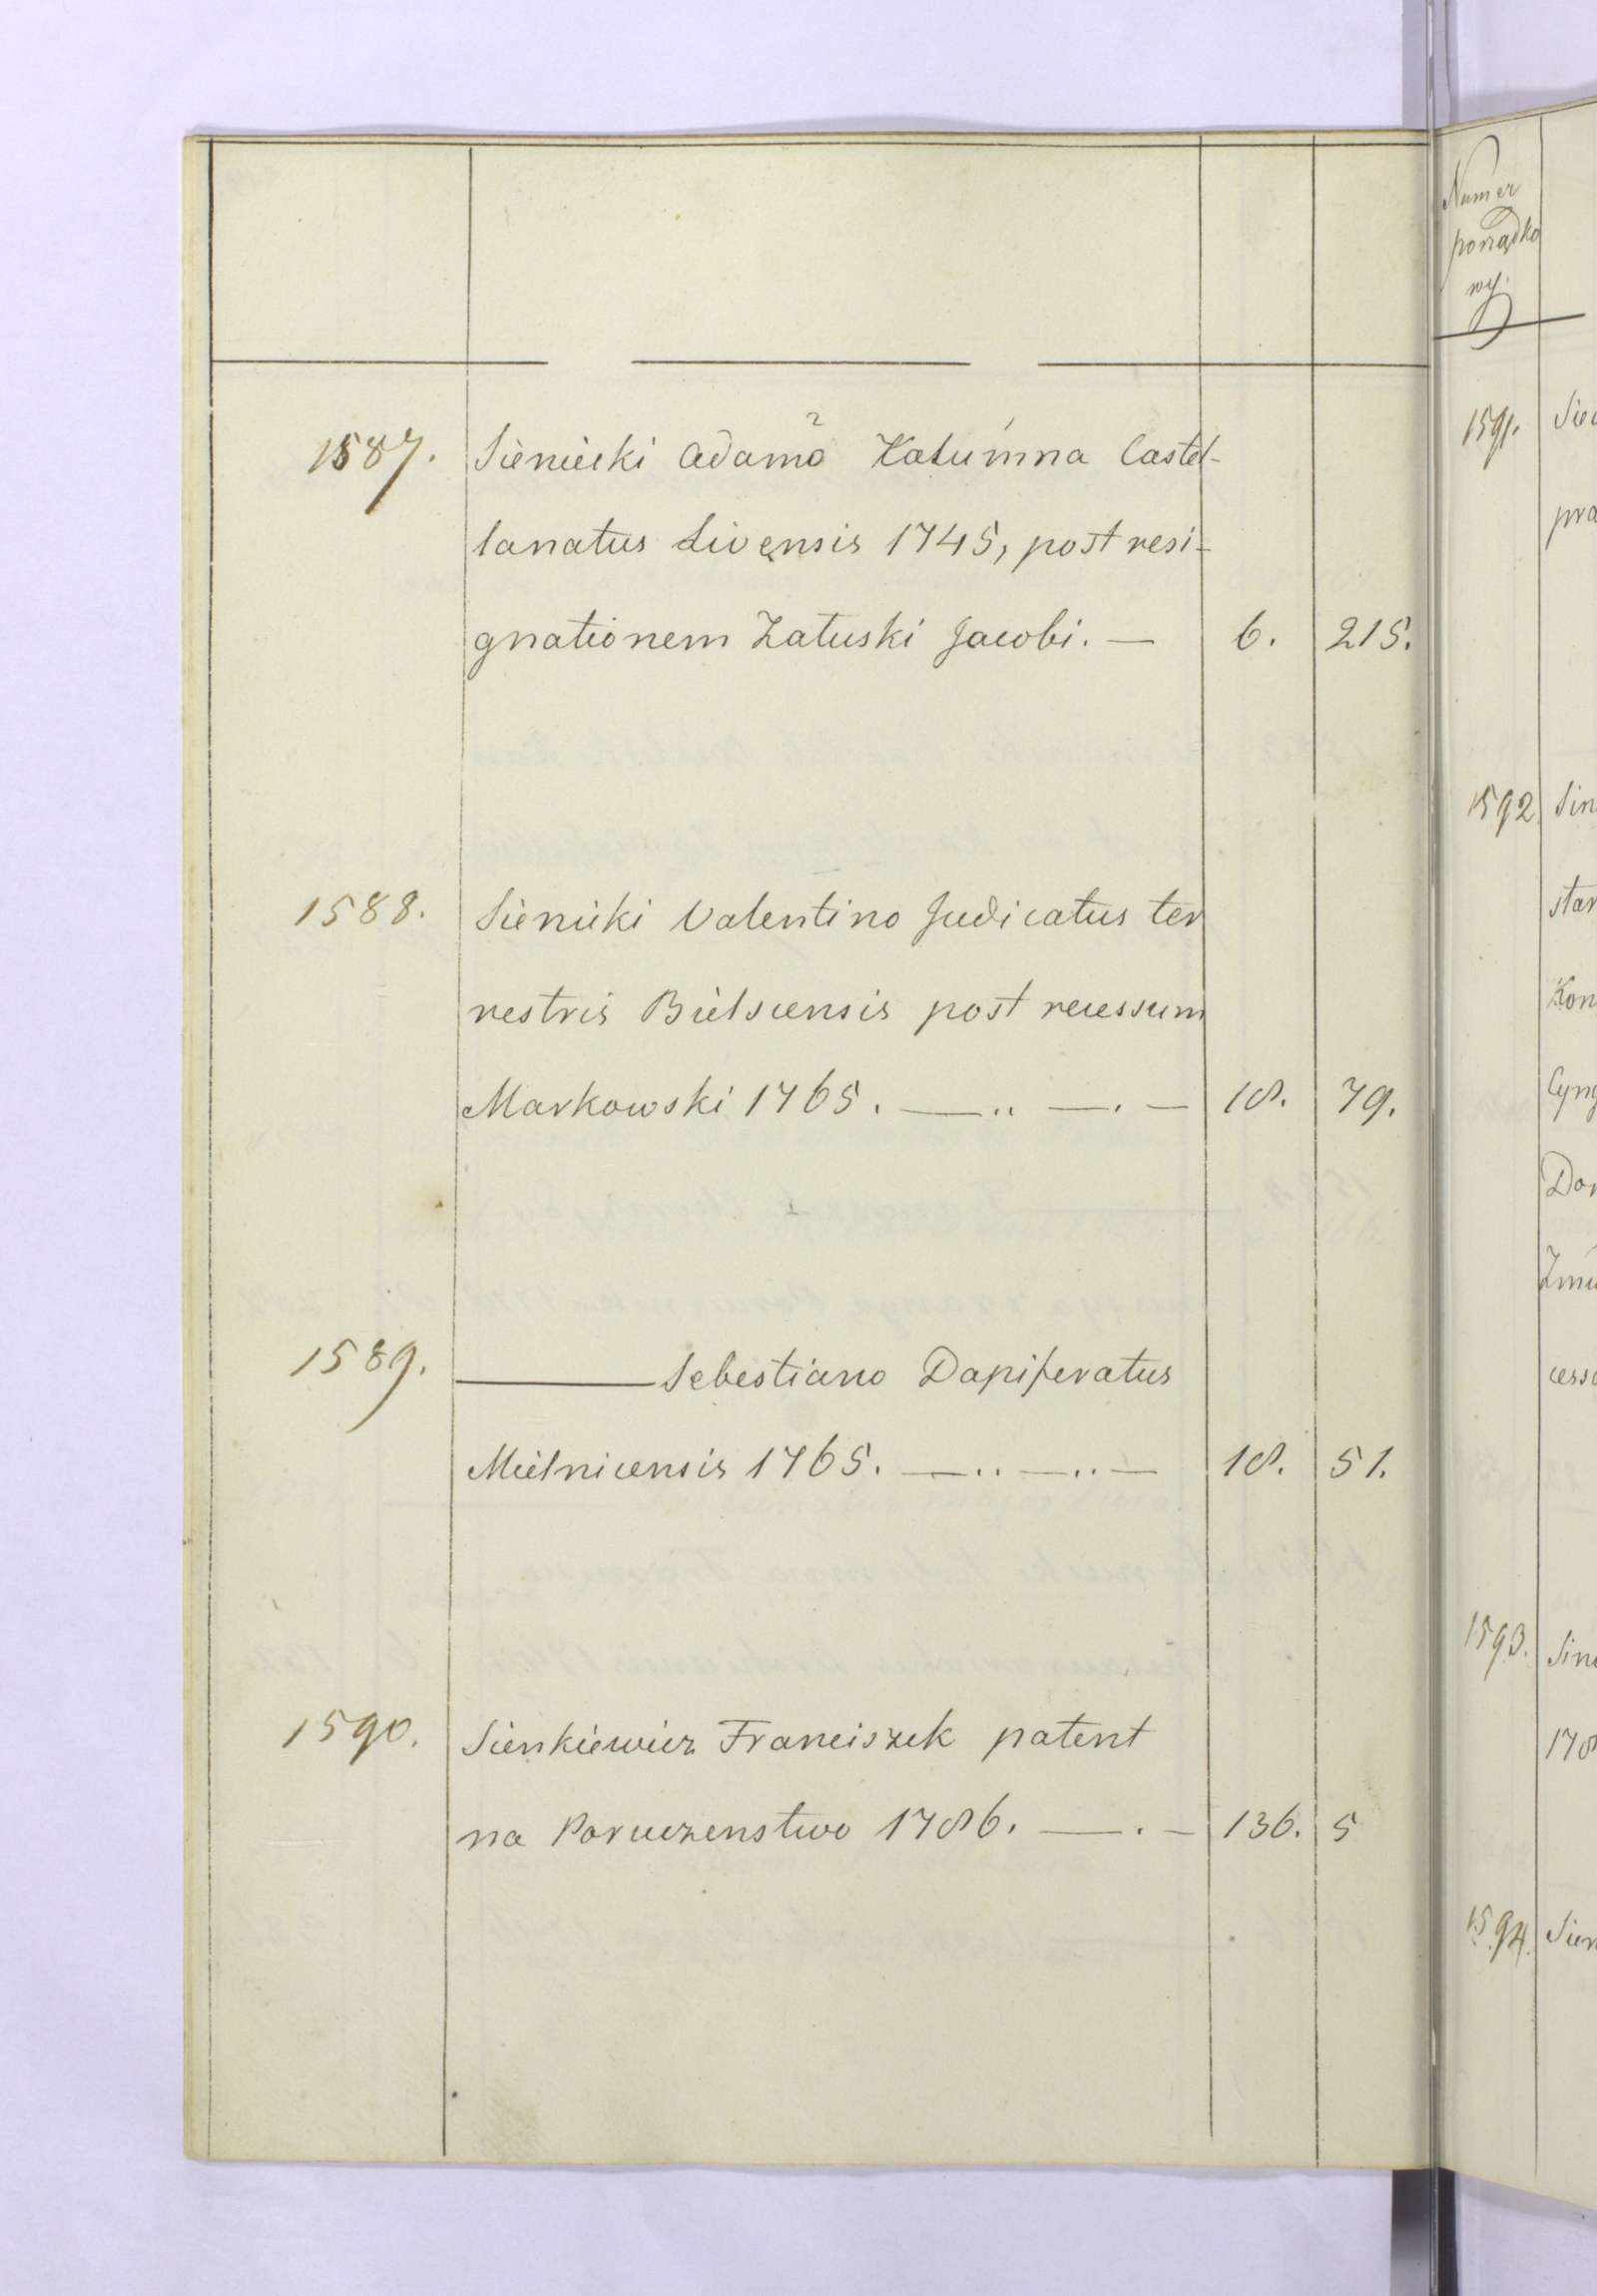 1587. Sienicki Adamo Kałumna Castel-
lanatus Livensis 1745, post resi-
gnationem Załuski Jacobi. — 6. 215.
1588. Sienicki Valentino Judicatus ter
restris Bielscensis post recessum
Markowski 1765. — .. — . — 18. 79.
1589. ——— Sebestiano Dapiferatus
Mielnicensis 1765. — .. — .. — 18. 51.
1590. Sienkiewicz Franciszek patent
na Poruczenstwo 1786. — . — 136. 5
Numer
porządko
wy.
1591.
pra
1592 Sin
star
Kon
Cyng
Don
Zmu
cess
1593. Sin
178
1594. Sien